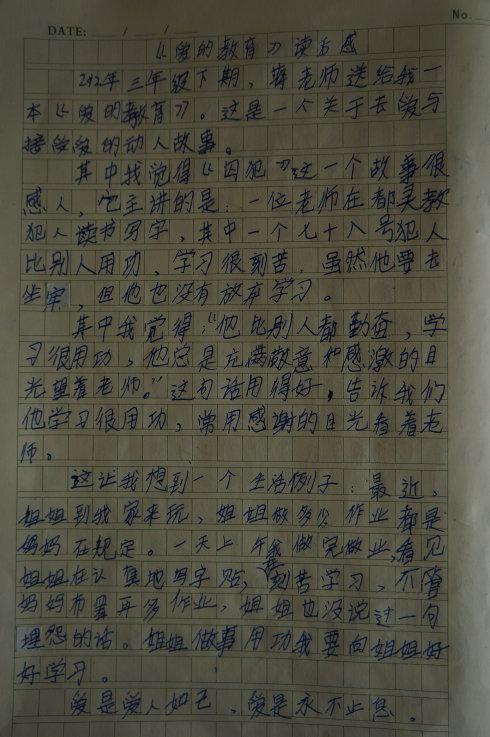 No.
DATE: / /
《爱的教育》读后感
202年三年级下期，蒋老师送给我一
本《爱的教育》。这是一个关于去爱与
接受爱的动人故事。
其中我觉得《囚犯》这一个故事很
感人，它主讲的是：一位老师在都灵教
犯人读书写字，其中一个七十八号犯人
比别人用功，学习很刻苦，虽然他要去
坐牢，但他也没有放弃学习。
其中我觉得：“他比别人都勤奋，学
习很用功，他总是充满敬意和感激的目
光望着老师。”这句话用得好，告诉我们
他学习很用功，常用感谢的目光看着老
师。
这让我想到一个生活例子：最近，
姐姐到我家来玩，姐姐做多少作业都是
妈妈在规定。一天上午我做完做业，看见
姐姐在认真地写字贴，刻苦学习，不管
妈妈布置再多作业，姐姐也没说过一句
埋怨的话。姐姐做事用功我要向姐姐好
好学习。
爱是爱人如己，爱是永不止息。